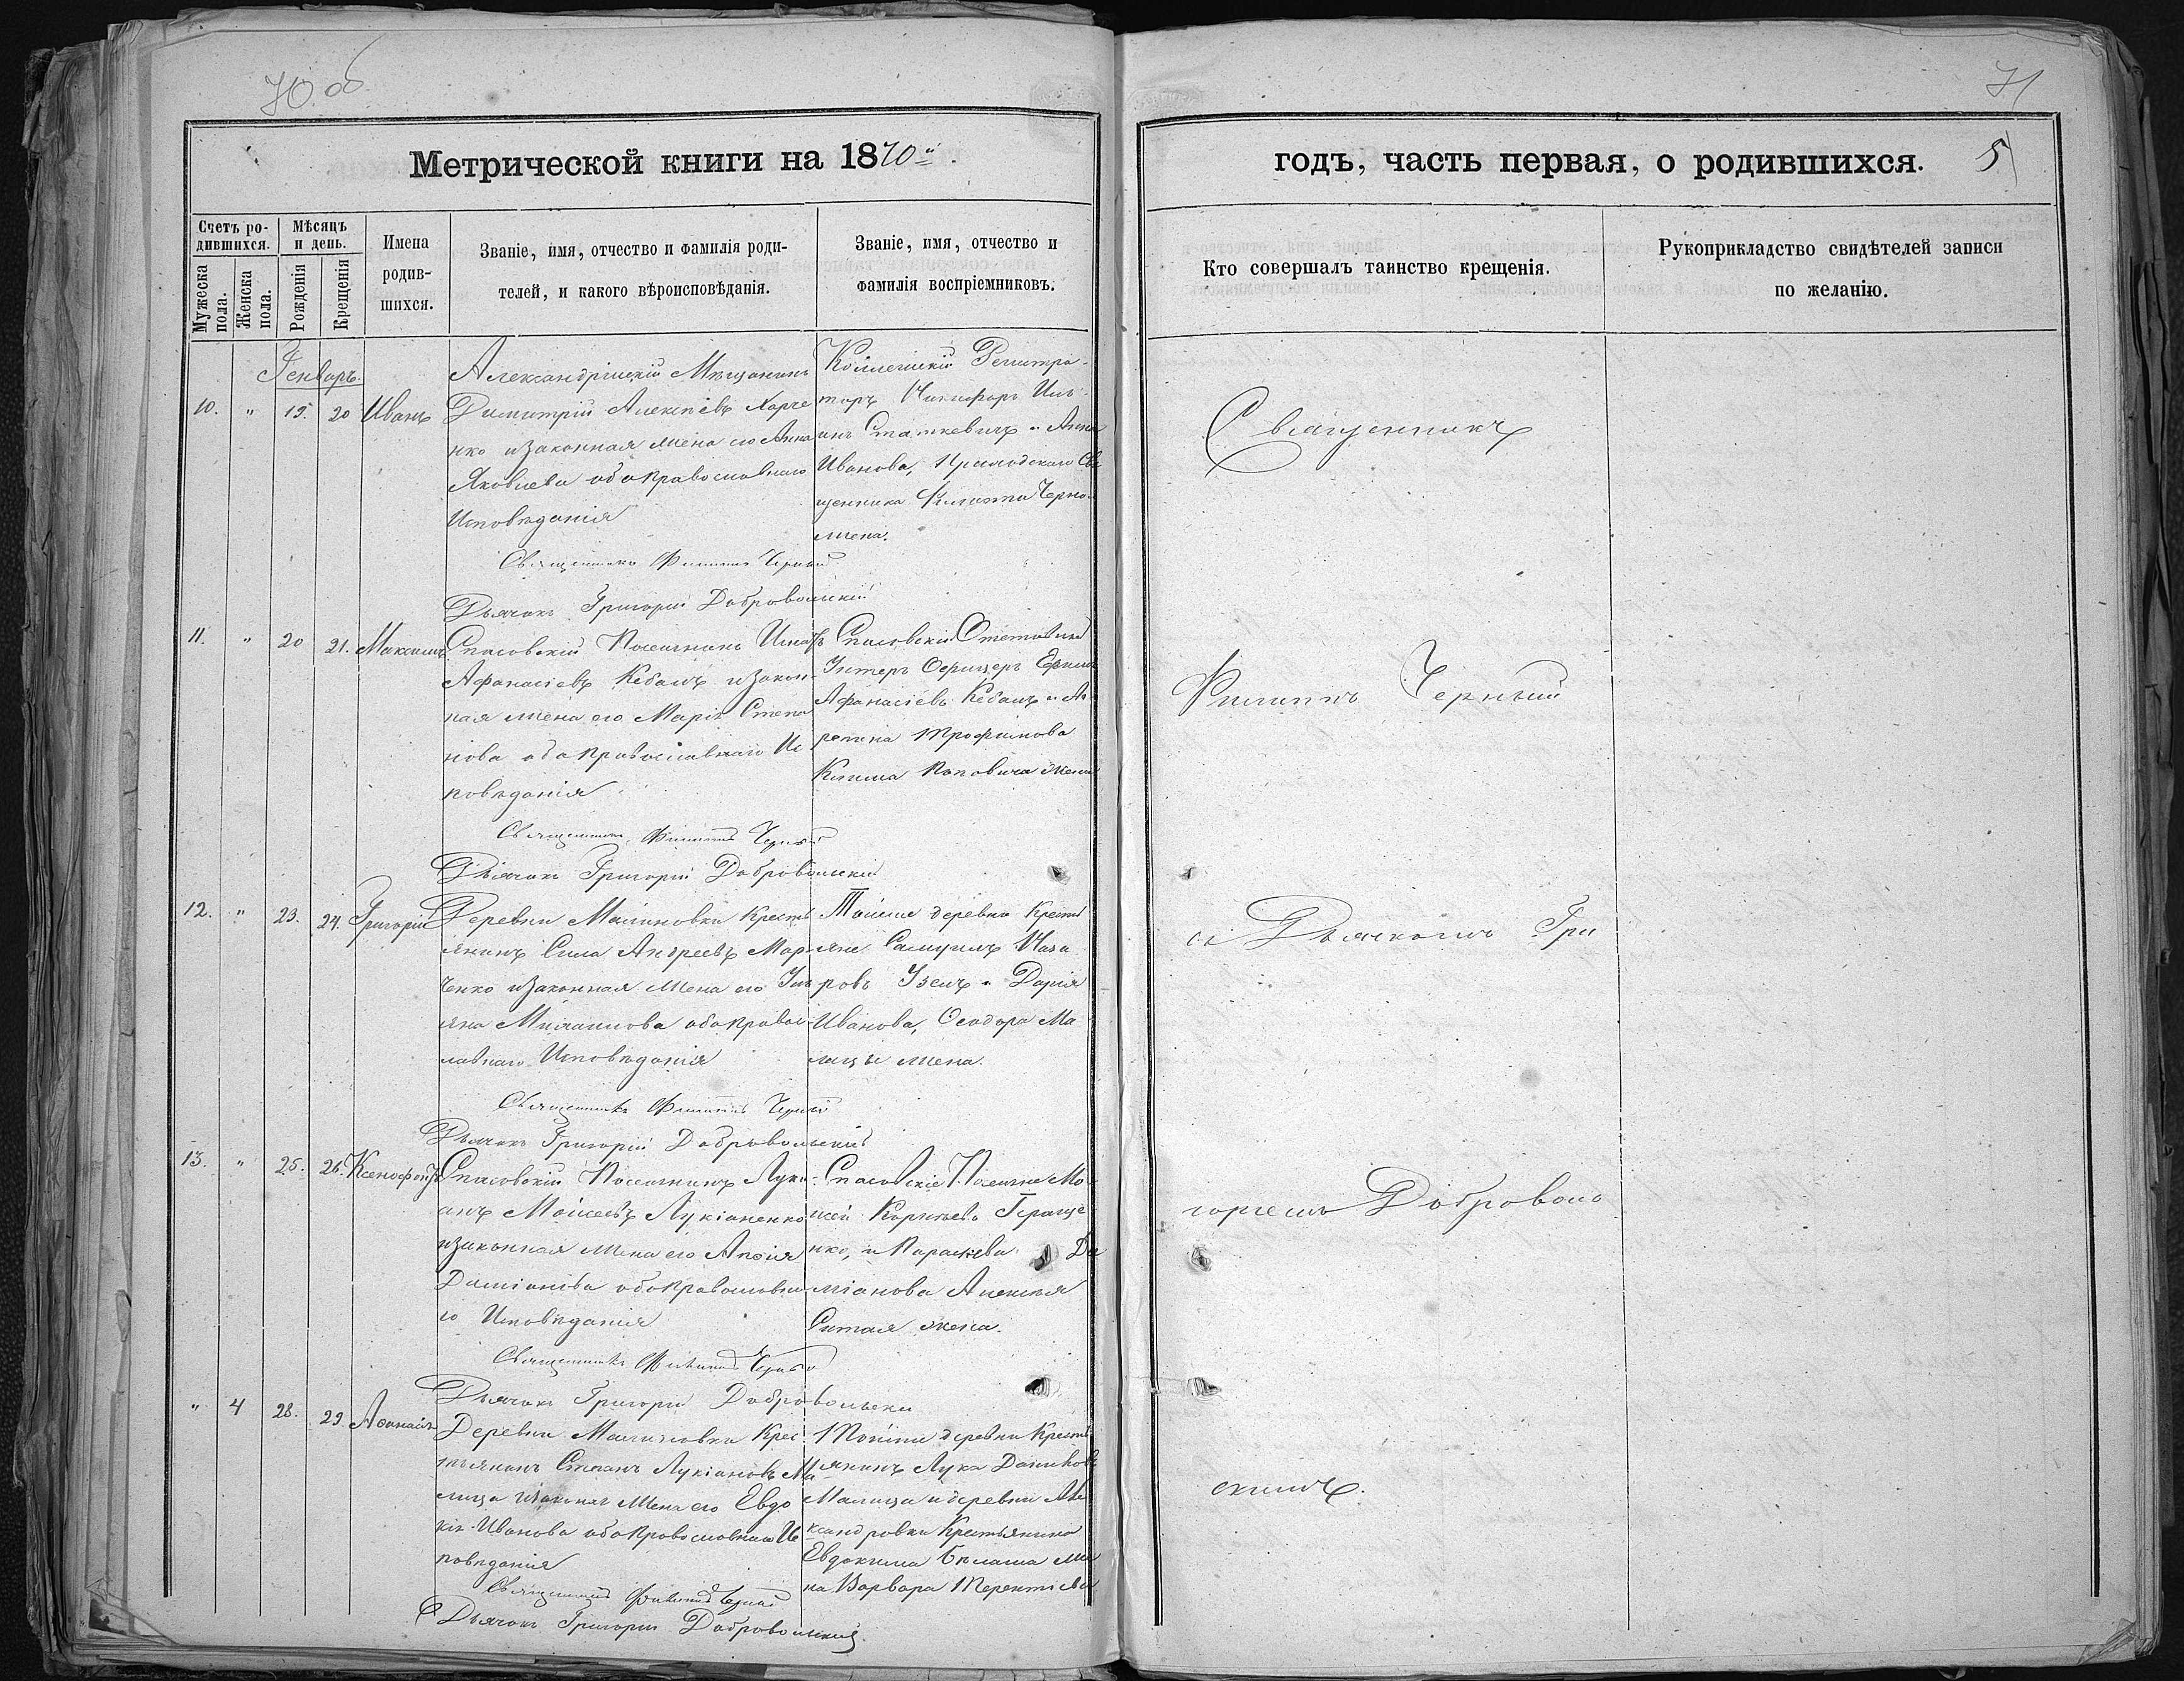 70 об.
71
Метрической книги на 1870й.
годъ, часть первая, о родившихся. 5
Счетъ ро-
дившихся.
Мужеска пола.
Женска пола.
Мѣсяцъ
и день.
Рожденія
Крещенія
Имена
родив-
шихся.
Званіе, имя, отчество и фамилія роди-
телей, и какого вѣроисповѣданія.
Званіе, имя, отчество и
фамилія воспріемниковъ.
Кто совершалъ таинство крещенія.
Рукоприкладство свидѣтелей записи
по желанію.
Генварь.
10. " 15. 20 Иванъ
Александрійскій Мѣщанинъ
Димитрій Алексіевъ Харче
нко изаконная жена его Анна
Яковлева оба православнаго
Исповѣданія
Коллежскій Регистра-
торъ Никифоръ Иль-
инъ Сташкевичъ и Анна
Иванова, Приходскаго Свя
щенника Филиппа Черно-
жена.
Священникъ Филиппъ Черный
Дьячокъ Григорій Добровольскій
11. " 20 21. Максимъ
Спасовскій Поселянинъ Игнатъ
Афанасіевъ Кебалъ изакон-
ная жена его Марія Степа
нова оба православнаго Ис
повѣданія
Спасовскій Отставный
Унтеръ Офицеръ
Афанасіевъ Кебалъ и
Трофимова
Клима Поповича жена
Священникъ Филиппъ Черный
Дьячокъ Григорій Добровольскій
12. " 23. 24. Григорій
Деревни Малиновки Кресть
янинъ Сила Андреевъ Мар
ченко изаконная жена его Уль
яна Михаилова оба правос
лавнаго Исповѣданія
Тойже деревни Кресть
яне Самуилъ Наза
ровъ Узелъ и Дарія
Иванова, Ѳеодора Ма
лицы жена.
Священникъ Филиппъ Черный
Дьячокъ Григорій Добровольскій
13. " 25. 26. Ксенофонтъ
Спасовскій Поселянинъ Луки-
анъ Моісеевъ Лукіаненко
изаконная жена его Анѳія
Даміанова оба православна
го Исповѣданія
Спасовскіе Поселяне Мо
исей Корніевъ Гераще
нко, и Параскева Да
міанова Алексія
Сытая жена.
Священникъ Филиппъ Черный
Дьячокъ Григорій Добровольскій
" 4 28. 29
Деревни Малиновки Крес
тьянинъ Стефанъ Лукіановъ Ма
лица изаконная жена его Евдо
кія Иванова оба православнаго Ис
повѣданія
Тойже деревни Кресть
янинъ Лука Даниловъ
Малица и деревни Але
ксандровки Крестьянина
Евдокима Бѣлаша же
на Варвара Терентіева
Священникъ Филиппъ Черный
Дьячокъ Григорій Добровольскій
Священникъ
Филиппъ Черный
съ Дьячкомъ Гри
горіемъ Доброволь
скимъ.